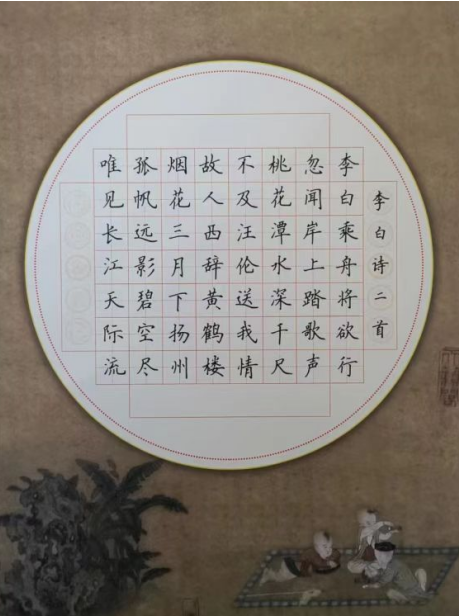 李白诗二首
李白乘舟将欲行
忽闻岸上踏歌声
桃花潭水深千尺
不及汪伦送我情
故人西辞黄鹤楼
烟花三月下扬州
孤帆远影碧空尽
唯见长江天际流